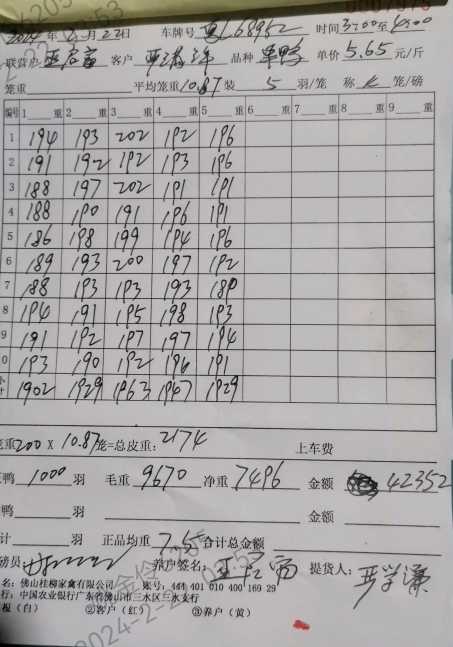 2024年2月22日 车牌号 粤L68952 时间3:00至4:00
联营户 客户 品种 单鸭 单价 5.65 元/斤
笼重 平均笼重10.87 装 5 羽/笼 称 笼/磅
编号 1 重 2 重 3 重 4 重 5 重 6 重 7 重 8 重 9 重
1 194 193 202 192 196
2 191 192 192 193 196
3 188 197 202 191 191
4 188 190 191 196 191
5 186 198 199 194 196
6 189 193 200 197 192
7 188 193 193 193 189
8 194 191 195 198 193
9 191 192 197 197 194
0 193 190 192 196 191
计 1902 1929 1963 1947 1929
笼重200 × 10.87笼=总皮重: 2174 上车费
鸭 1000 羽 毛重 9670 净重 7496 金额 42352
鸭 羽 金额
计 羽 正品均重 7.5 合计总金额
磅员 养户签名: 提货人:
名: 佛山桂柳家禽有限公司 账号: 444 401 010 400 169 29
行: 中国农业银行广东省佛山市三水区三水支行
报 (白) ②客户 (红) ③养户 (黄)